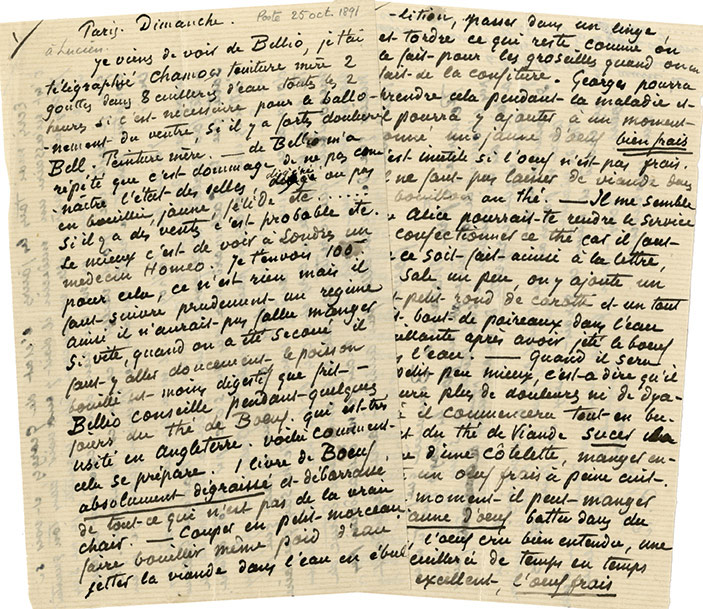 Paris. Dimanche.
Poste 25 oct. 1891
à Lucien.
Je viens de voir de Bellio, je t'ai
télégraphié Chamos teinture mère 2
gouttes dans 8 cuillères d'eau toutes les 2
heures si c'est nécessaire pour le ballo-
nement du ventre, si il y a fortes douleurs
Bell. Teinture mère. — de Bellio m'a
répété que c'est dommage de ne pas con-
naitre l'état des selles digéré ou pas
en bouillie, jaune, gélide etc.....
si il y a des vents c'est probable etc.
Le mieux c'est de voir à Londres un
medecin Homeo. Je t'envois 100
pour cela, ce n'est rien mais il
faut suivre prudement un regime
aussi il n'aurait pas fallu manger
si vite, quand on a été secoué il
faut y aller doucement le poisson
bouilli est moins digestif que frit. —
Bellio conseille, pendant quelques
jours du thé de Boeuf, qui est très
usité en Angleterre. voilà comment
cela se prépare. 1 livre de Boeuf
absolument dégraissé et débarrassé
de tout ce qui n'est pas de la vraie
chair. — Couper en petit morceau
faire bouillir même poid d'eau
jetter la viande dans l'eau en ébul
-lition, passer dans un linge
et tordre ce qui reste comme on
le fait pour les groseilles quand on en
fait de la confiture. Georges pourra
prendre cela pendant la maladie et
il pourra y ajouter à un moment
donné un jaune d'oeuf bien frais
c'est inutile si l'oeuf n'est pas frais.
il ne faut pas laisser de viande dans
bouillon au thé. — Il me semble
Alice pourrait te rendre le service
confectionner ce thé car il faut
ce soit fait aussi à la lettre,
sale un peu, on y ajoute un
petit rond de carotte et un tout
bout de poireaux dans l'eau
bouillante après avoir jeté le boeuf
l'eau. — Quand il sera
petit peu mieux, c'est à dire qu'il
aura plus de douleurs ni de dya-
il commencera tout en bu-
du thé de Viande sucer
d'une côtelette, manger en-
un oeuf frais à peine cuit.
moment il peut manger
jaune d'oeuf battu dans du
l'oeuf cru bien entendu, une
cuillère de temps en temps
excellent, l'oeuf frais